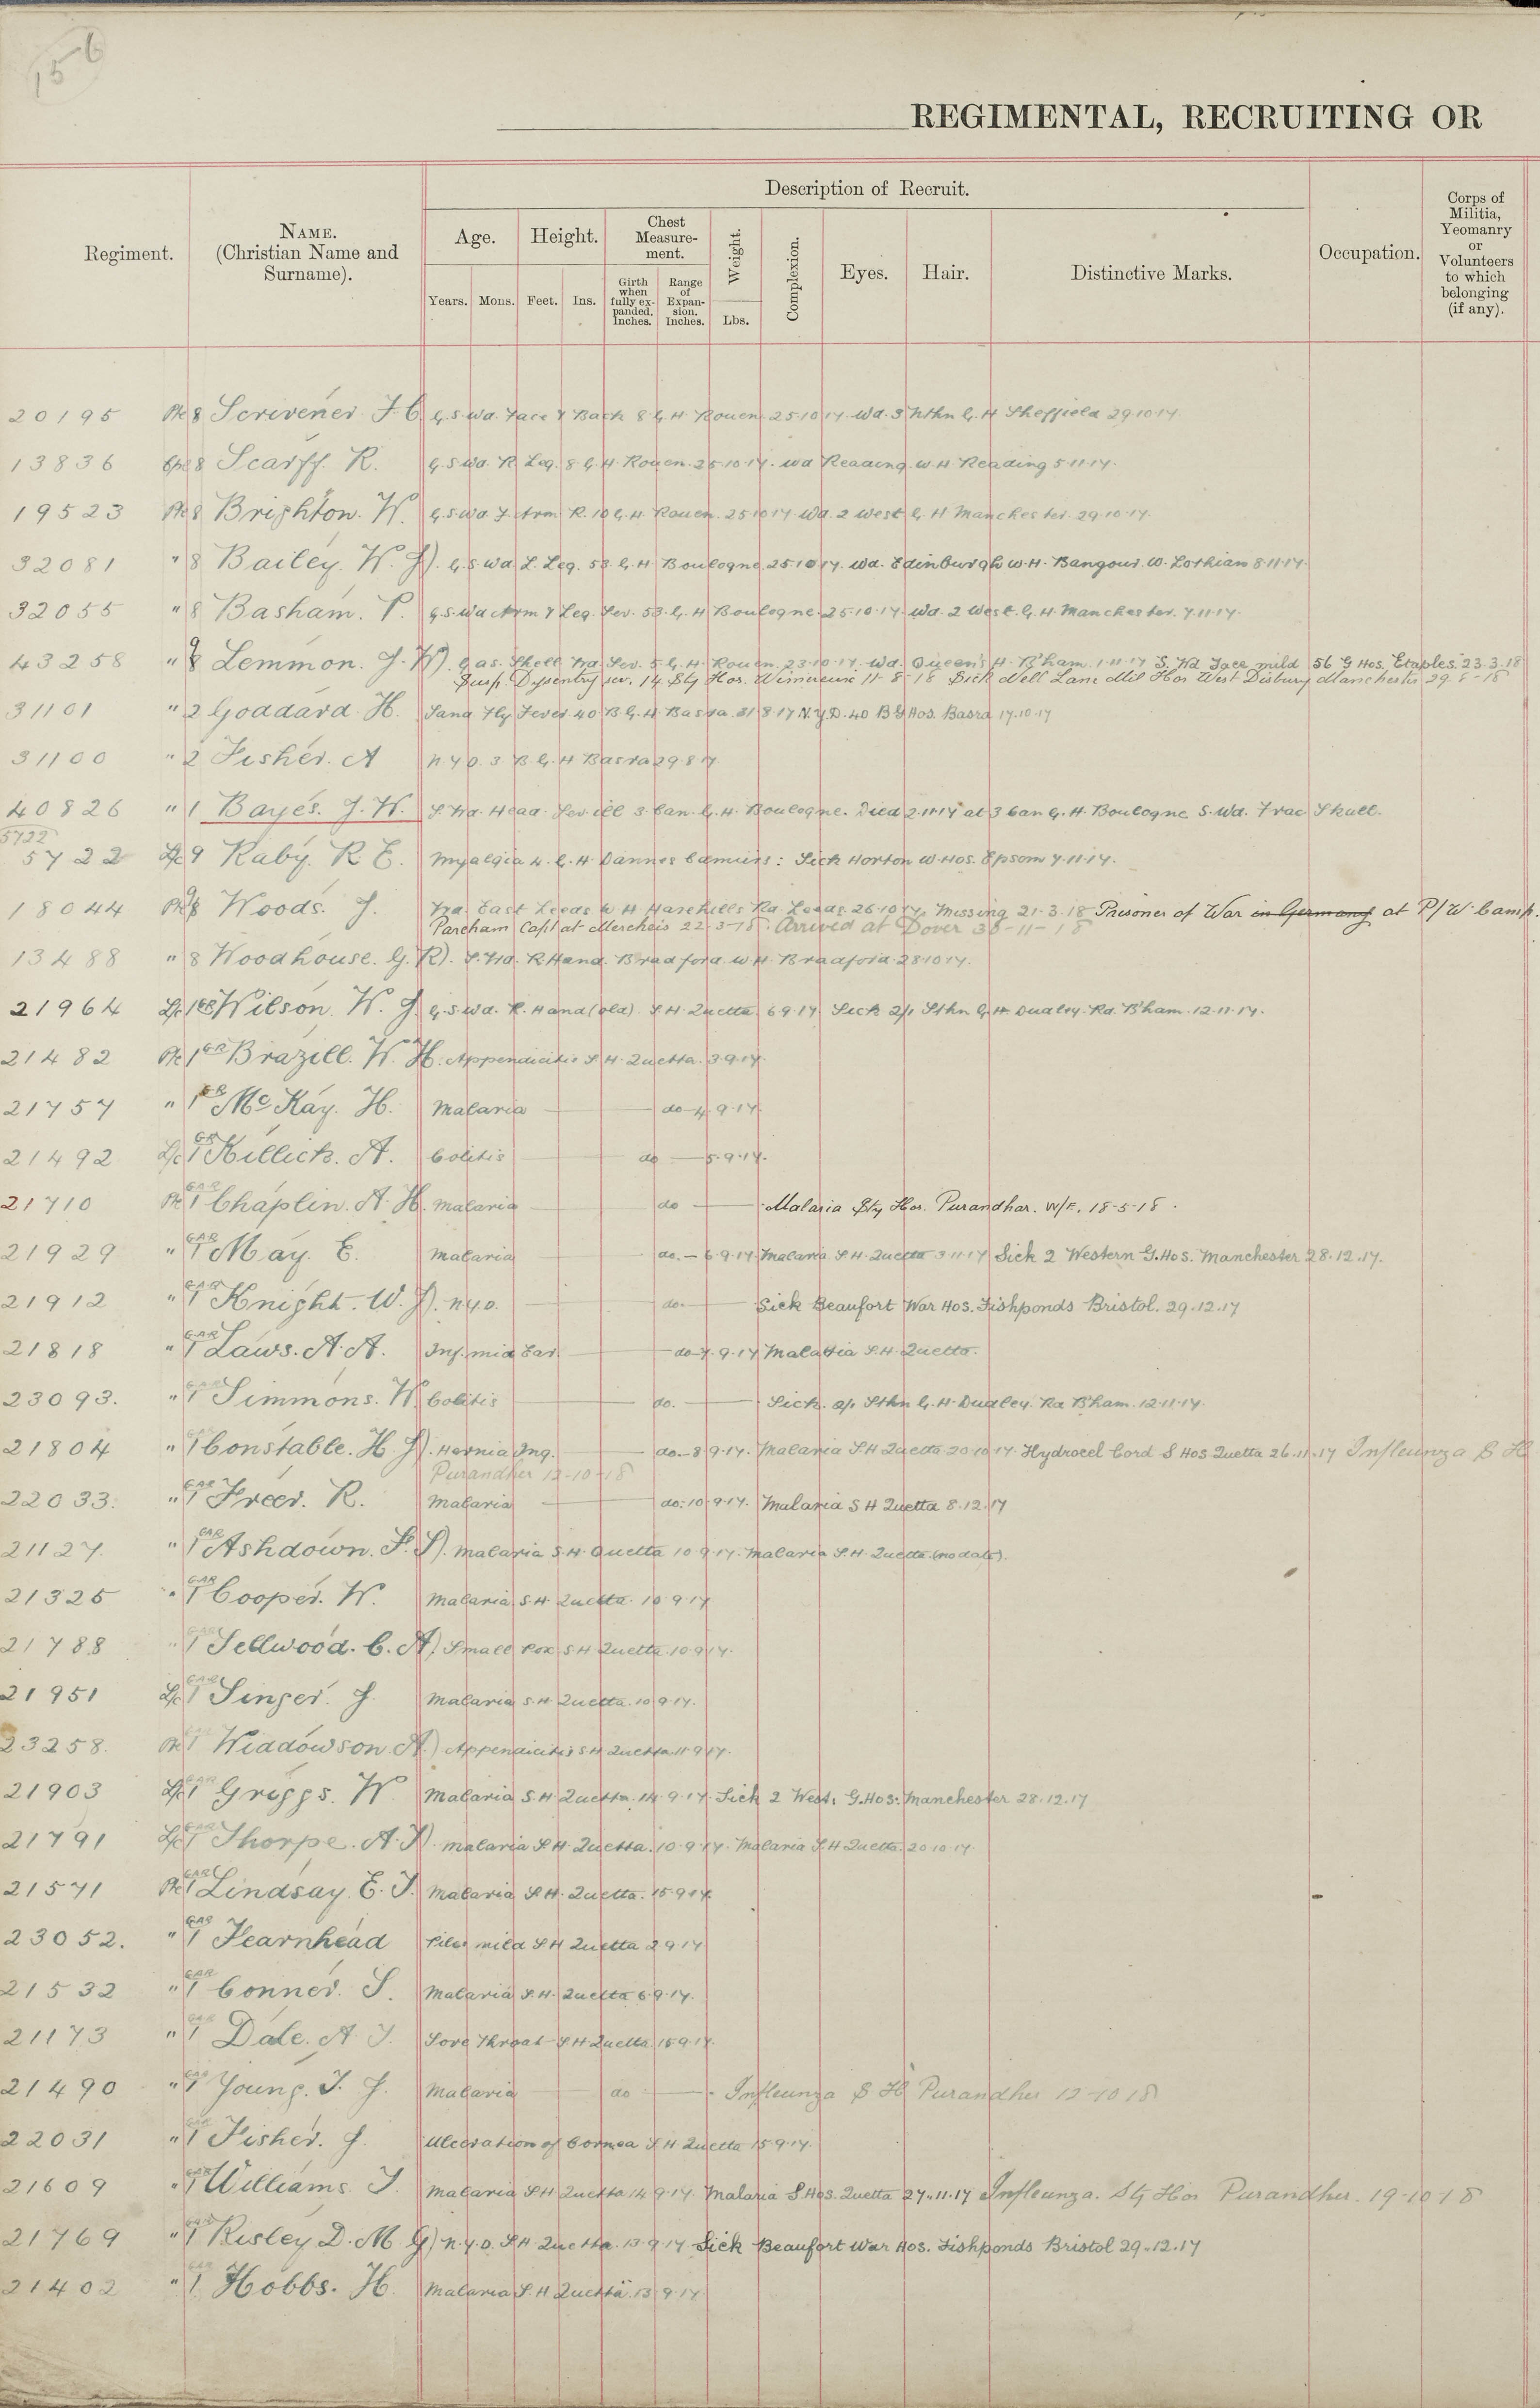 156
REGIMENTAL, RECRUITING OR
Regiment.
NAME. (Christian Name and Surname).
Description of Recruit.
Age. Years. Mons.
Height. Feet. Ins.
Chest Measurement. Girth when fully expanded. Inches. Range of Expansion. Inches.
Weight. Lbs.
Complexion.
Eyes.
Hair.
Distinctive Marks.
Occupation.
Corps of Militia, Yeomanry or Volunteers to which belonging (if any).
20195 Pte 8 Scrivener. F.C. G.S.Wd. Face & Back 8 G.H. Rouen. 25.10.17. Wd. 3 Nthn G.H. Sheffield 29.10.17.
13836 Cpl 8 Scarff. R. G.S.Wd. R. Leg. 8 G.H. Rouen. 25.10.17. Wd Reading. W.H. Reading 5.11.17.
19523 Pte 8 Brighton. W. G.S.Wd. F. Arm. R. 10 G.H. Rouen. 25.10.17. Wd. 2 West G.H. Manchester. 29.10.17.
32081 " 8 Bailey. W.J). G.S.Wd. L. Leg. 53 G.H. Boulogne 25.10.17. Wd. Edinburgh W.H. Bangour. W. Lothian 8.11.17.
32055 " 8 Basham. P. G.S.Wd. Arm & Leg. Sev. 53. G.H. Boulogne. 25.10.17. Wd. 2 West. G.H. Manchester. 7.11.17.
43258 " 9 Lemmon. J.W). Gas. Shell Wd. Sev. 5 G.H. Rouen. 23.10.17. Wd. Queen's H. B'ham. 1.11.17 S. Wd Face mild 56 G Hos. Etaples 23.3.18
Susp. Dysentry sev. 14 Sty Hos. Wimereux 11-8-18 Sick Nell Lane Mil Hos West Disbury Manchester 29-8-18
31101 " 2 Goddard. H. Sand Fly Fever 40 B.G.H. Basra. 31.8.17 N.Y.D. 40 B G Hos. Basra 17.10.17
31100 " 2 Fisher. A N.Y.D. 3 B.G.H Basra 29.8.17.
40826 " 1 Bayes. J.W. S. Wd. Head. Sev. ill 3 Can. G.H. Boulogne. Died 2.11.17 at 3 Can G.H. Boulogne S. Wd. Frac Skull.
5722
5722 L/c 9 Raby. R E. Myalgia 4. G.H Dannes Camiers: Sick Horton W. Hos. Epsom 7.11.17.
18044 Pte 9 Woods. J. Wd. East Leeds W H Harehills Rd. Leeds. 26.10.17. Missing 21.3.18 Prisoner of War in Germany at P/W Camp.
Parcham Capt at Mercheis 22-3-18. Arrived at Dover 30-11-18
13488 " 8 Woodhouse. G.R). S. Wd. R Hand. Bradford W H. Bradford. 28.10.17.
21964 L/c 1 GR Wilson. W. J. G.S.Wd. R. Hand (old). S.H. Quetta 6.9.17. Sick 2/1 Sthn G.H. Dudley. Rd. B'ham. 12.11.17.
21482 Pte 1 GR Brazill. W. H. Appendicitis S.H. Quetta. 3.9.17.
21757 " 1 GR McKay. H. Malaria do 4.9.17.
21492 L/c 1 GR Killick. A. Colitis do 5.9.17.
21710 Pte 1 GAR Chaplin. A. H. Malaria do Malaria Sty Hos. Purandhar. W/E. 18-5-18.
21929 " 1 GAR May. E. Malaria do. 6.9.17. Malaria S.H. Quetta 3.11.17 Sick 2 Western G. Hos. Manchester 28.12.17.
21912 " 1 GAR Knight. W.J). N.Y.D. do. Sick Beaufort War Hos. Fishponds Bristol. 29.12.17
21818 " 1 GAR Laws. A. A. Inf. mid Ear do 7.9.17 Malaria S.H. Quetta.
23093. " 1 Simmons. W. Colitis do. Sick. 2/1 Sthn G.H. Dudley. Rd B'ham. 12.11.17.
21804 " 1 Constable. H. J). Hernia Ing. do. 8.9.17. Malaria S.H Quetta 20.10.17. Hydrocel Cord S Hos Quetta 26.11.17 Infleunza S H
Purandher 12-10-18
22033. " 1 GAR Freer. R. Malaria do: 10.9.17. Malaria S H Quetta 8.12.17
21127. " 1 GAR Ashdown. F. S). Malaria S.H. Quetta 10.9.17. Malaria S.H. Quetta (no date).
21325 " 1 GAR Cooper. W. Malaria S.H Quetta. 10.9.17
21788 " 1 Sellwood. C. A). Small Pox S H Quetta. 10.9.17.
21951 L/c 1 GAR Singer. J. Malaria S.H. Quetta. 10.9.17.
23258. Pte 1 Widdowson A.) Appendicitis S H. Quetta 11.9.17.
21903 L/c 1 GAR Griggs. W. Malaria S.H. Quetta. 14.9.17. Sick 2 West. G. Hos. Manchester 28.12.17
21791 L/c 1 Thorpe. A. J). Malaria S.H. Quetta. 10.9.17. Malaria S.H Quetta. 20.10.17.
21571 Pte 1 GAR Lindsay. E. J. Malaria S.H. Quetta. 15.9.17.
23052. " 1 GAR Fearnhead Piles mild S H Quetta 2.9.17
21532 " 1 GAR Conner. S. Malaria S.H. Quetta 6.9.17.
21173 " 1 Dale. A. J. Sore Throat S H Quetta 15.9.17.
21490 " 1 Young. J. J. Malaria do Infleunza S H Purandher 12-10-18
22031 " 1 Fisher. J. Ulceration of Cornea S H Quetta 15.9.17.
21609 " 1 GAR Williams. J. Malaria S H Quetta 14.9.17. Malaria S. Hos. Quetta 27.11.17 Infleunza. Sty Hos Purandher. 19-10-18
21769 " 1 Risley D. M. G) N.Y.D. S.H. Quetta. 13.9.17 Sick Beaufort War Hos. Fishponds Bristol 29.12.17
21402 " 1 Hobbs. H. Malaria S.H Quetta. 13.9.17